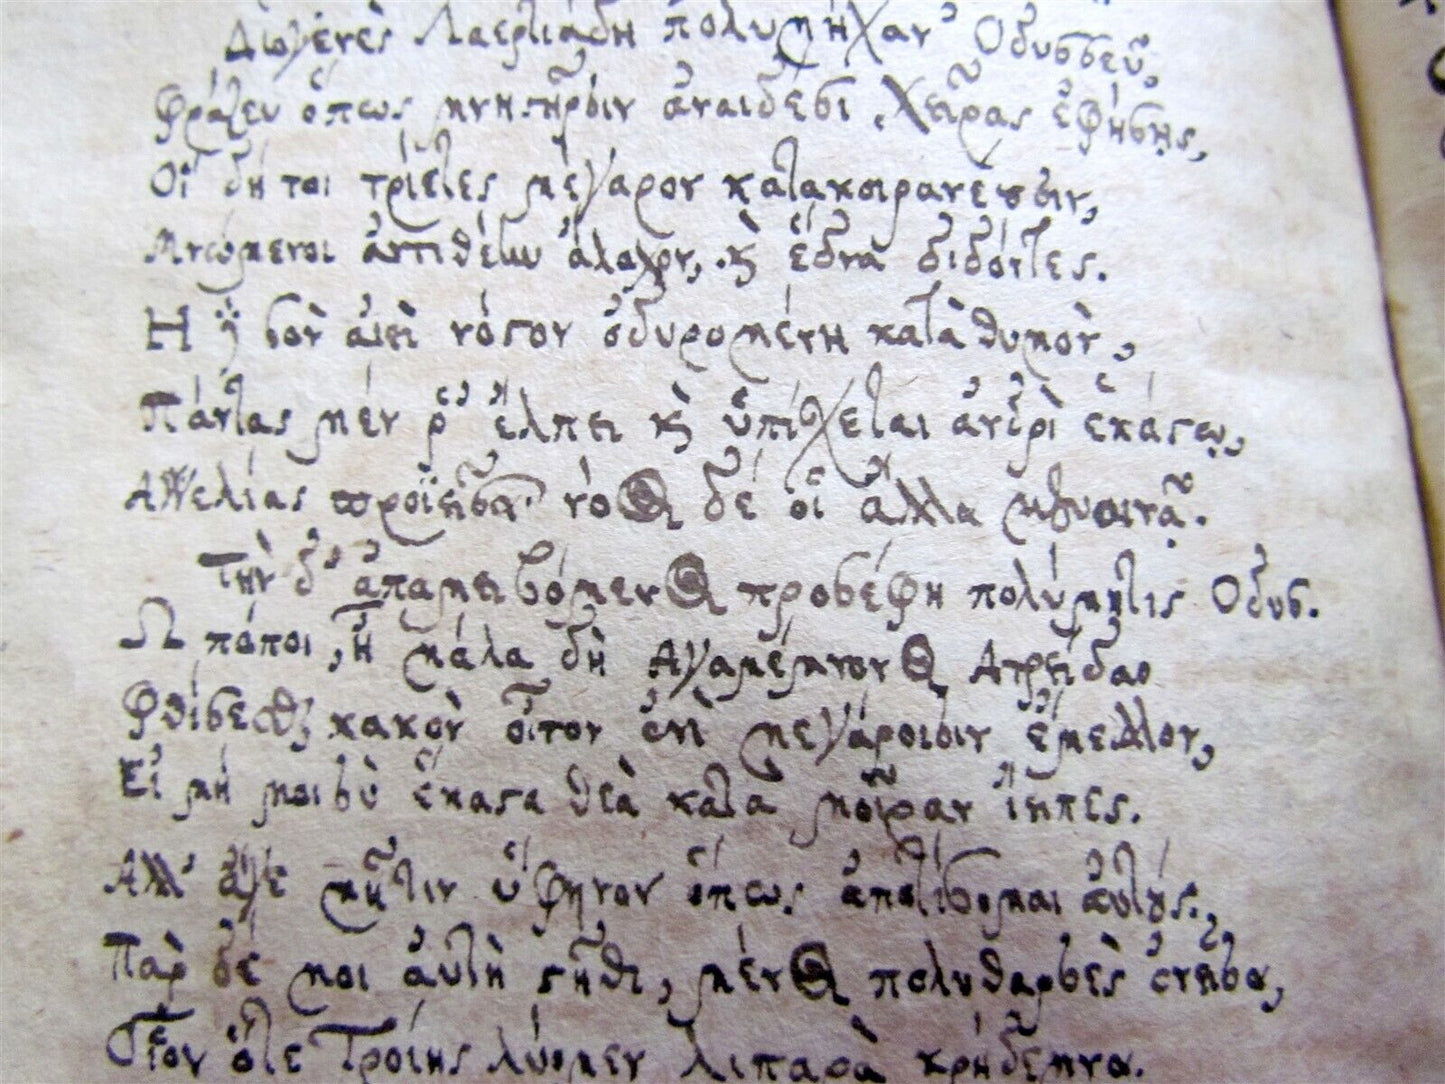 Διογενὲς Λαερτιάδη πολυμήχαν' Οδυσσεῦ,
Φράζευ ὅπως μνηστῆρσιν ἀναιδέσι χεῖρας ἐφήσῃς,
Οἵ δή τοι τρίετες μέγαρον κατακοιρανέουσιν,
Μνώμενοι ἀντιθέην ἄλοχον, ϗ ἕδνα διδόντες.
Η δὲ σὸν ἀιεὶ νόστον ὀδυρομένη κατὰ θυμὸν,
Πάντας μέν ῥ' ἔλπει ϗ ὑπίχεται ἀνδρὶ ἑκάστῳ,
Αγγελίας προϊεῖσα· νόος δέ οἱ ἄλλα μενοινᾷ.
Τὴν δ' ἀπαμειβόμενος προσέφη πολύμητις Οδυσ.
Ω πόποι, ἦ μάλα δὴ Αγαμέμνονος Ατρείδαο
Φθίσεσθαι κακὸν οἶτον ἐνὶ μεγάροισιν ἔμελλον,
Εἰ μή μοι σὺ ἕκαστα θεὰ κατὰ μοῖραν ἔηπες.
Αλλ' ἄγε μῆτιν ὕφηνον ὅπως ἀποτίσομαι ἀυτȣς,
Πὰρ δέ μοι ἀυτὴ στῆθι, μένος πολυθαρσὲς ἐνεῖσα,
Οἷον ὅτε Τροίης λύομεν λιπαρὰ κρήδεμνα.